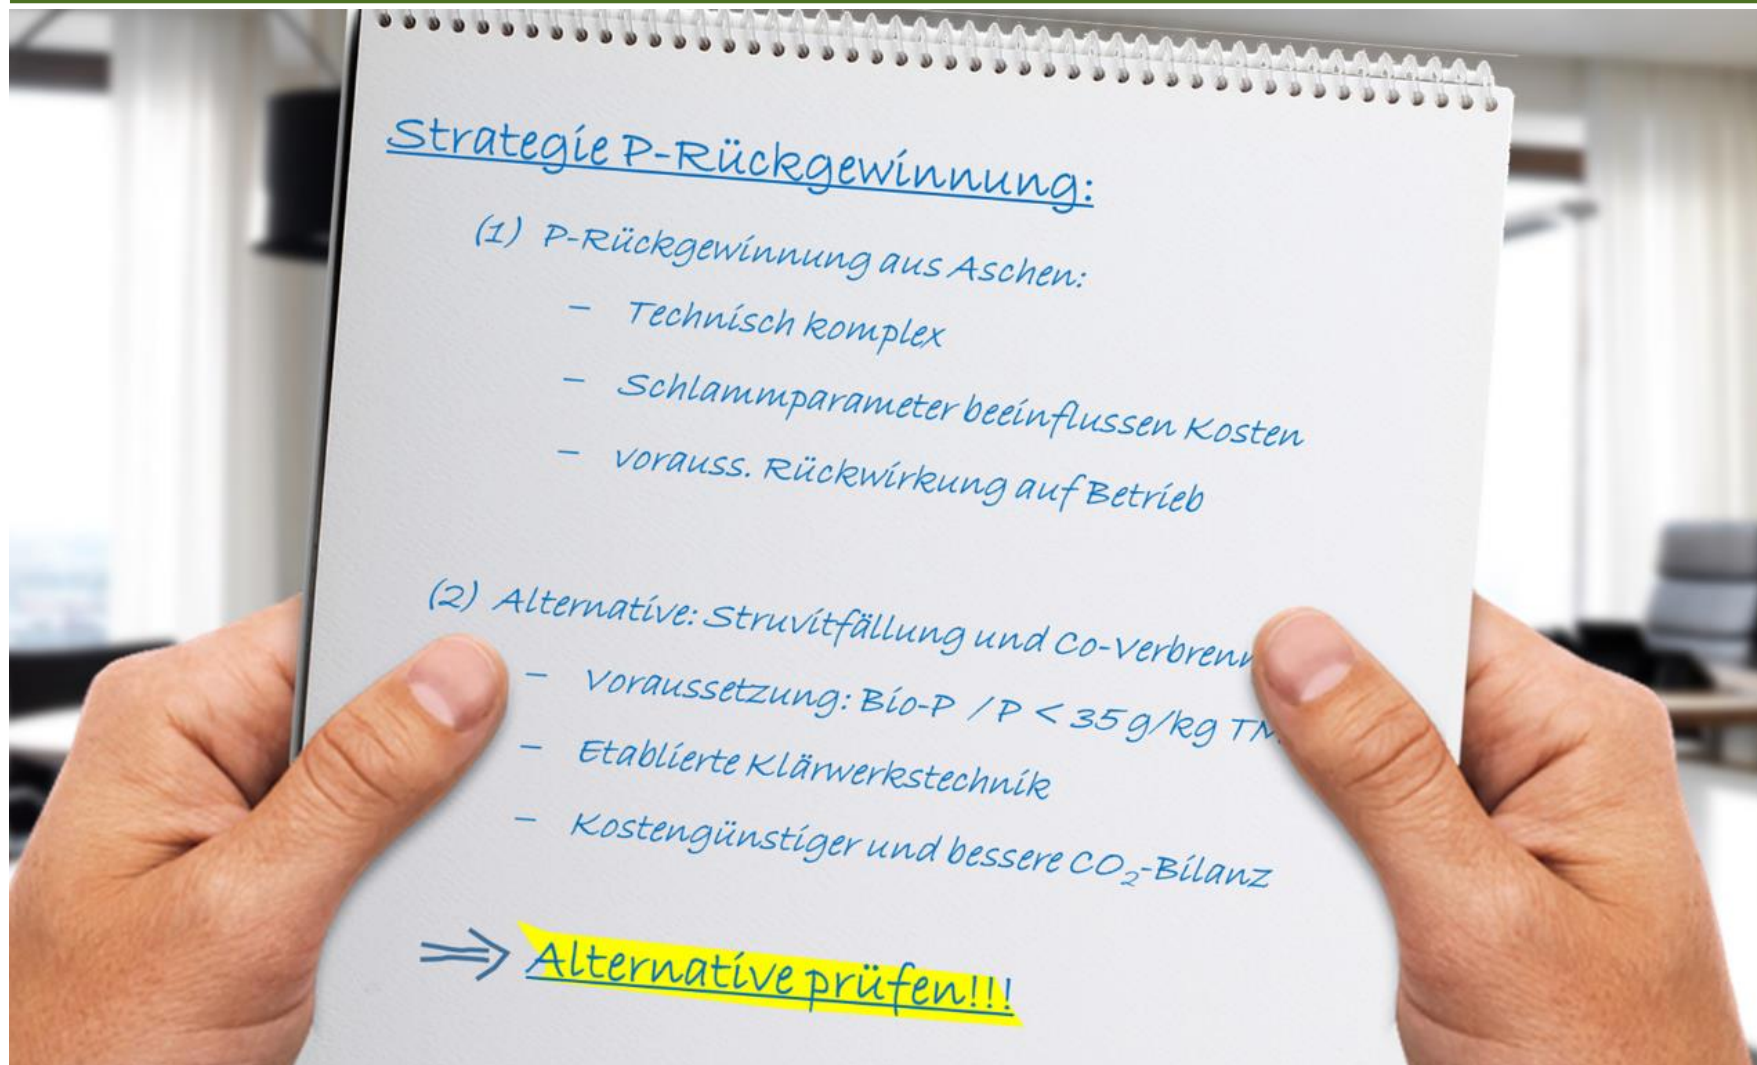 Strategie P-Rückgewinnung:
(1) P-Rückgewinnung aus Aschen:
– Technisch komplex
– Schlammparameter beeinflussen Kosten
– vorauss. Rückwirkung auf Betrieb
(2) Alternative: Struvitfällung und Co-Verbren
– Voraussetzung: Bio-P / P < 35 g/kg
– Etablierte Klärwerkstechnik
– Kostengünstiger und bessere CO₂-Bilanz
⇒ Alternative prüfen!!!